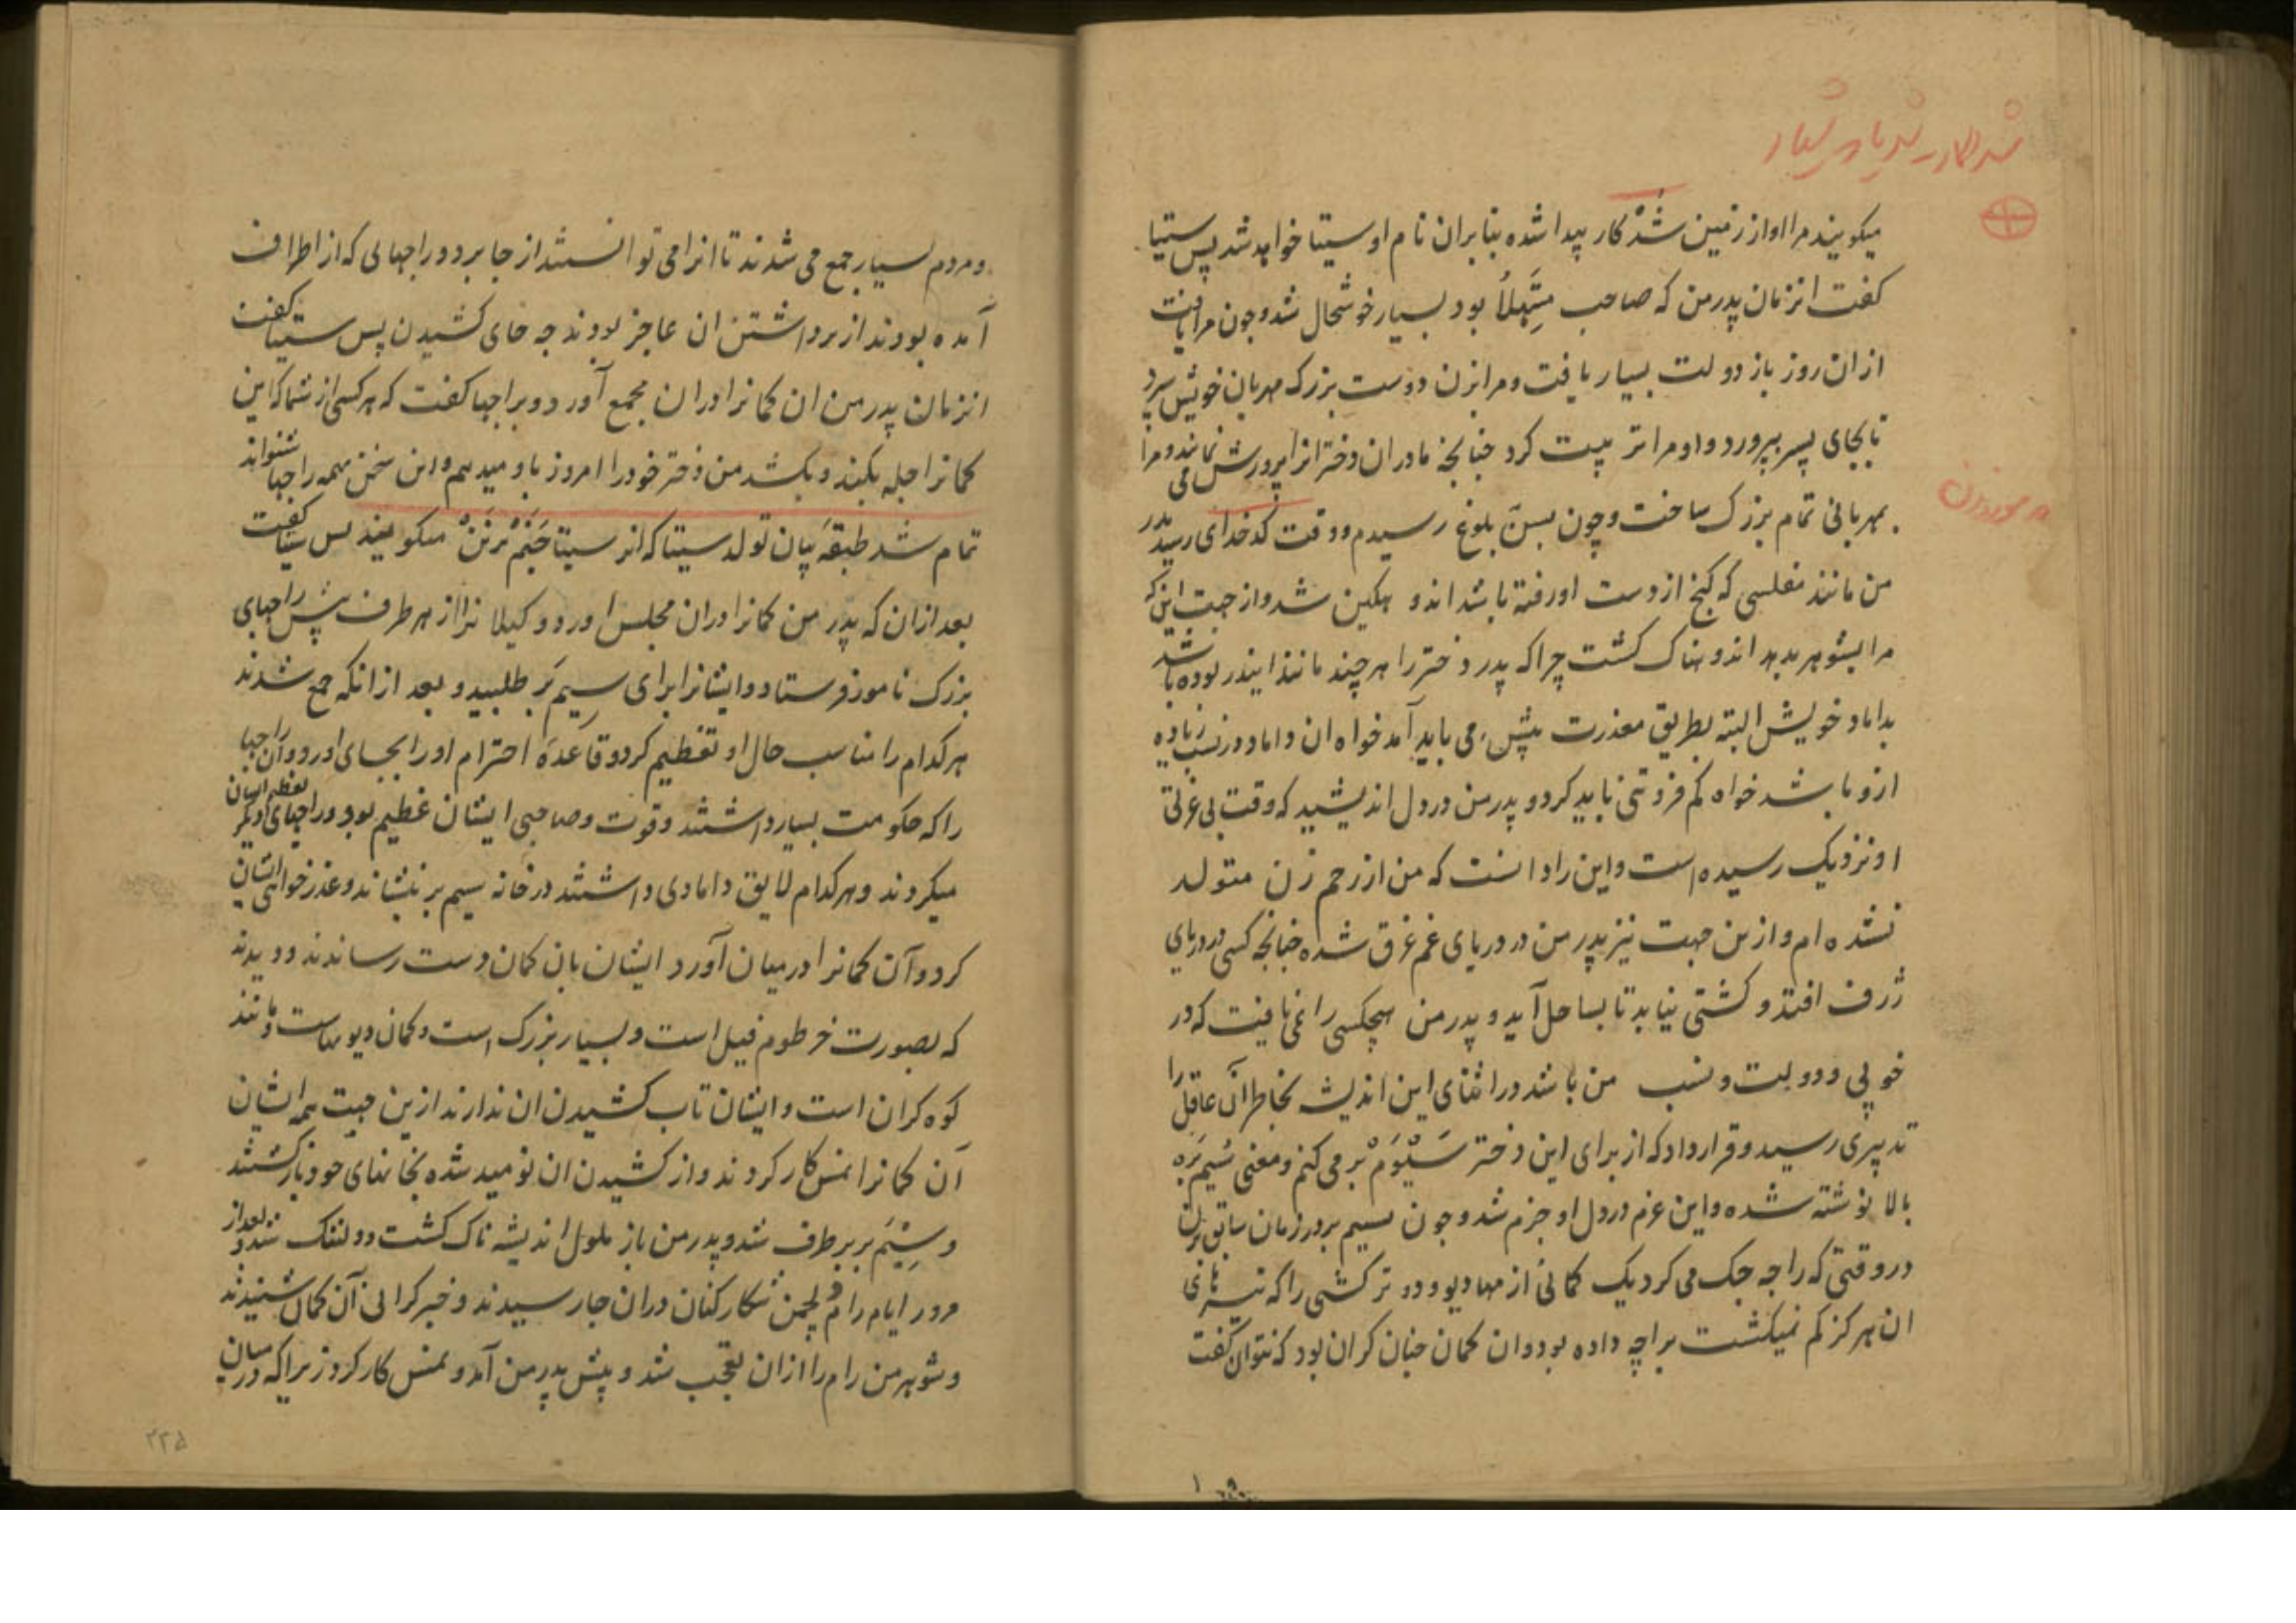 میکویند مرا او از زمین شُدْکار پیدا شده بنابران نام او سیتا خواهد شد پس سیتا
کفت انزمان پدر من که صاحب مِتَهِلاُ بود بسیار خوشحال شد و چون مرا یافت
ازان روز باز دولت بسیار یافت و مرا بزن دوست بزرک مهربان خویش سپرد
تا بجای پسر بپرورد و او مرا تربیت کرد چنانچه مادران دختر انرا پرورش می نمایند و مرا
بمهربانی تمام بزرک ساخت و چون بسنّ بلوغ رسیدم و وقت کدخدای رسید پدر
من مانند مفلسی که کنج از دست او رفته باشد اندوهکین شد و از جهت این که
مرا بشوهر بدهد اندوهناک کشت چرا که پدر دختر را هر چند مانند ایندر بوده باشد
بداماد خویش البته بطریق معذرت پیش می باید آمد خواه ان داماد در نسب زیاده
ازو باشد خواه کم فروتنی باید کرد و پدر من در دل اندیشید که وقت بی عزتی
او نزدیک رسیده است و این را دانست که من از رحم زن متولد
نشده ام و ازین جهت نیز پدر من در دریای غم غرق شده چنانچه کسی در دریای
ژرف افتد و کشتی نیابد تا بساحل آید و پدر من هیچکسی را نمی یافت که در
خوبی و دولت و نسب من باشد در اثنای این اندیشه بخاطر آن عاقل را
تدبیری رسید و قرار داد که از برای این دختر سَیْوَمْ بَر می کنم و معنی سیم بره
بالا نوشته شده و این عزم در دل او جزم شد و چون سیم بر در زمان سابق
در وقتی که راجه جک می کرد یک کمانی از مهادیو و دو ترکشی را که تیرهای
ان هرکز کم نمیکشت براجه داده بود و ان کمان چنان کران بود که نتوان کفت
و مردم بسیار جمع می شدند تا انرا می توانستند از جا برد و راجهایی که از اطراف
آمده بودند از برداشتن ان عاجز بودند چه جای کشیدن پس سیتا کفت
انزمان پدر من ان کمانرا دران مجمع آورد و براجها کفت که هر کسی از شما که این
کمانرا چله بکند و بکشد من دختر خود را امروز باو میدهم و این سخن همه راجها شنواند
تمام شد طبقهٔ بیان تولد سیتا که انرا سیتا جَنَمْ بَرنَنْ میکویند پس سیتا کفت
بعد ازان که پدر من کمانرا دران مجلس اورد و وکیلانرا از هر طرف پیش راجهای
بزرک نامور فرستاد و ایشانرا برای سِیم بَر طلبید و بعد ازانکه جمع شدند
هر کدام را مناسب حال او تعظیم کرد و قاعدهٔ احترام او را بجای اورد و آن راجها
را که حکومت بسیار داشتند و قوت و صاحبی ایشان عظیم بود و راجهای دیکر تعظیم ایشان
میکردند و هر کدام لایق دامادی داشتند در خانه سیم بر بنشاند و عذرخواهی ایشان
کرد و آن کمانرا در میان آورد ایشان بان کمان دست رساندند و دیدند
که بصورت خرطوم فیل است و بسیار بزرک است و کمان دیوهاست و مانند
کوه کران است و ایشان تاب کشیدن ان ندارند ازین جهت همه ایشان
آن کمانرا نمسکار کردند و از کشیدن ان نومید شده بخانهای خود بازکشتند
و سِیَم بر برطرف شد و پدر من باز ملول اندیشه ناک کشت و دلتنک شد و بعد از
مرور ایام رام و لچمن شکارکنان دران جا رسیدند و خبر کرانی آن کمان شنیدند
و شوهر من رام را ازان تعجب شد و پیش پدر من آمد و نمسکار کرد زیراکه در میان
۲۳۵